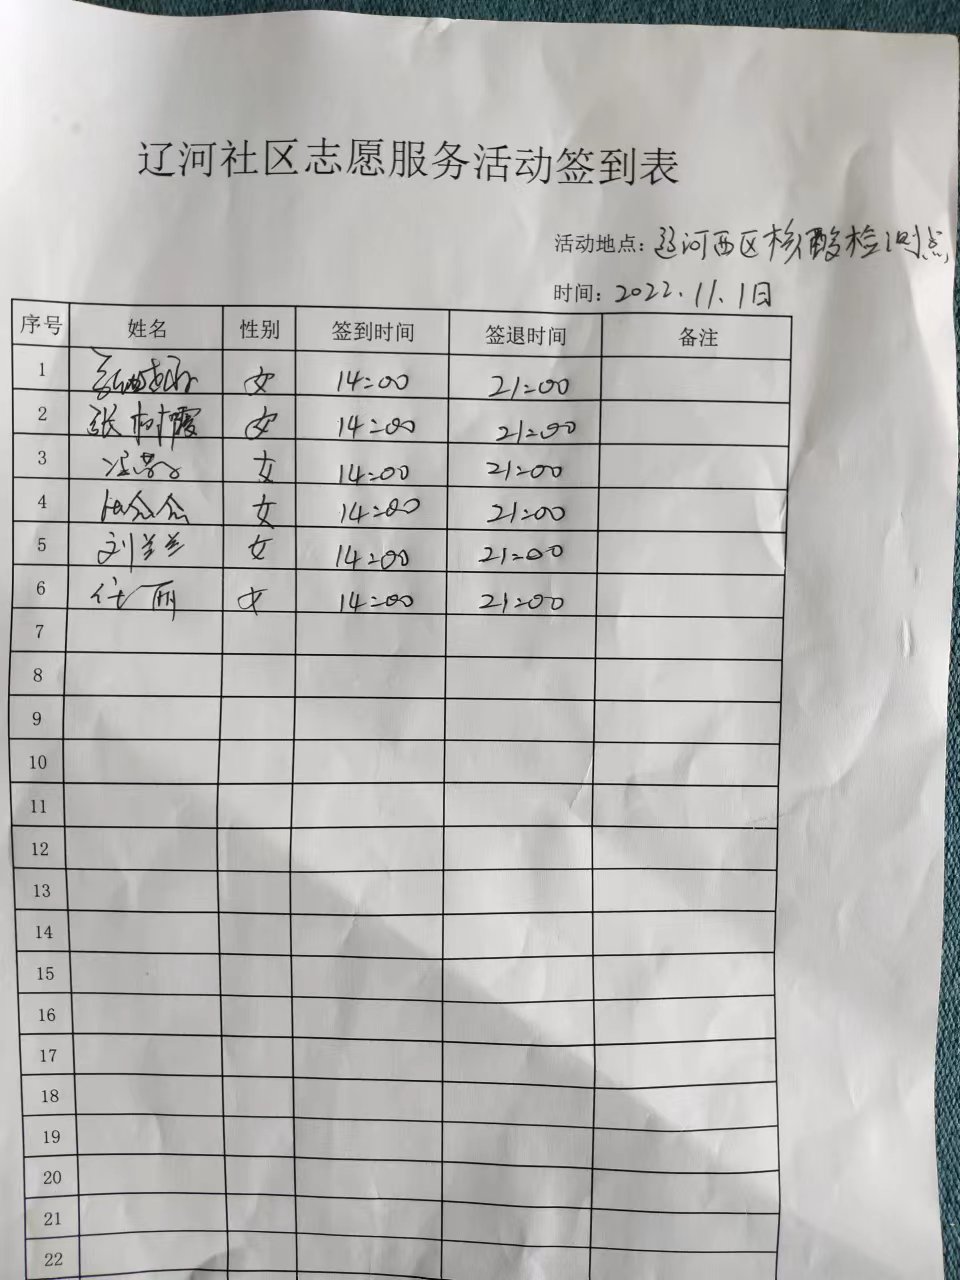 辽河社区志愿服务活动签到表
活动地点：辽河西区核酸检测点
时间：2022.11.1日
序号 姓名 性别 签到时间 签退时间 备注
1 女 14:00 21:00
2 张树霞 女 14:00 21:00
3 女 14:00 21:00
4 女 14:00 21:00
5 刘兰兰 女 14:00 21:00
6 任丽 女 14:00 21:00
7
8
9
10
11
12
13
14
15
16
17
18
19
20
21
22